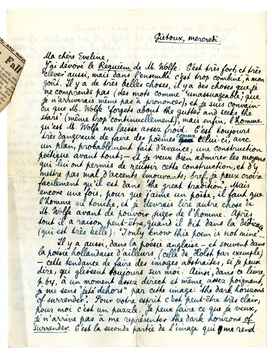 Fall
Gistoux, mercredi.
Ma chère Eveline,
J'ai dévoré le Requiem de M. Wolfe. C'est très fort, et très
clever aussi, mais dans l'ensemble c'est trop combiné, à mon
goût. Il y a de très belles choses, il y a des choses que je
ne comprends pas (des mots comme 'unassuageable', que
je n'arriverais même pas à prononcer) et je suis convaincu
que M. Wolfe 'forgets about the gutter and seeks the
stars' (même trop continuellement), mais enfin l'homme
qu'est M. Wolfe me laisse assez froid. C'est toujours
très dangereux de faire des poèmes comme celui-ci, avec
un plan, probablement fait d'avance, une construction
poétique avant tout - et je veux bien admirer les moyens
qui lui ont permis de réussir cette construction, et d'y
mettre pas mal d'accents émouvants; bref, je peux croire
facilement qu'il est dans 'the great tradition', mais
encore une fois, pour que j'aime un poète, il faut que
l'homme me touche, et je devrais lire autre chose de
M. Wolfe avant de pouvoir juger de l'homme. Après
tout il a raison peut-être, quand il dit dans la dédicace
(qui est très belle): 'I only know this poem is not mine'.
Il y a aussi, dans la poésie anglaise - et souvent dans
la poésie hollandaise d'ailleurs (celle de Holst par exemple)
- cette tendance de faire des images abstraites, si je peux
dire, qui glissent toujours sur moi. Ainsi, dans ce livre,
il y a, à un moment assez direct et même assez poignant,
je me sens 'mis dehors' par cette image: 'the dark horizons
of surrender'. Pour votre esprit c'est peut-être très clair,
pour moi c'est un puzzle. Je peux faire ce que je veux,
je n'arrive pas à me représenter the dark horizons of
surrender. C'est la seconde partie de l'image qui me rend